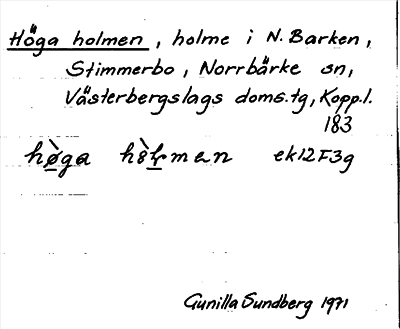 Höga holmen, holme i N. Barken,
Stimmerbo, Norrbärke sn,
Västerbergslags doms.tg, Kopp.l.
183
hø̀ga hòlmen ek12F3g
Gunilla Sundberg 1971